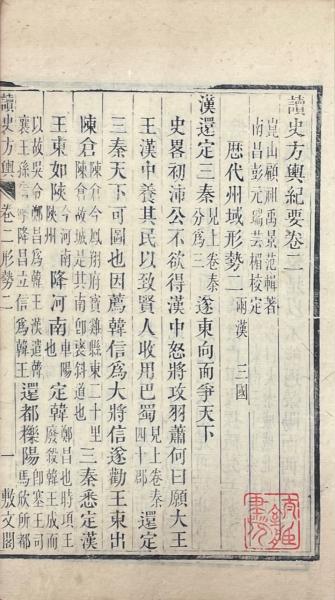 讀史方輿紀要卷二
崑山顧祖禹景范輯著
南昌彭元瑞芸楣校定
歷代州域形勢二 兩漢 三國
漢還定三秦 見上卷秦分爲三 遂東向而爭天下
史畧初沛公不欲得漢中怒將攻羽蕭何曰願大王
王漢中養其民以致賢人收用巴蜀 見上卷秦四十郡 還定
三秦天下可圖也因薦韓信爲大將信遂勸王東出
陳倉 陳倉今鳳翔府寶雞縣東二十里陳倉故城是其南卽褒斜道也 三秦悉定漢
王東如陝 陝今河南陝州 降河南 申陽也 定韓 鄭昌也時項王廢殺韓王成而
以故吳令鄭昌爲韓王漢遣韓襄王孫信擊降昌立信爲韓王 還都櫟陽 卽塞王司馬欣所都
讀史方輿 卷二形勢二 一 敷文閣